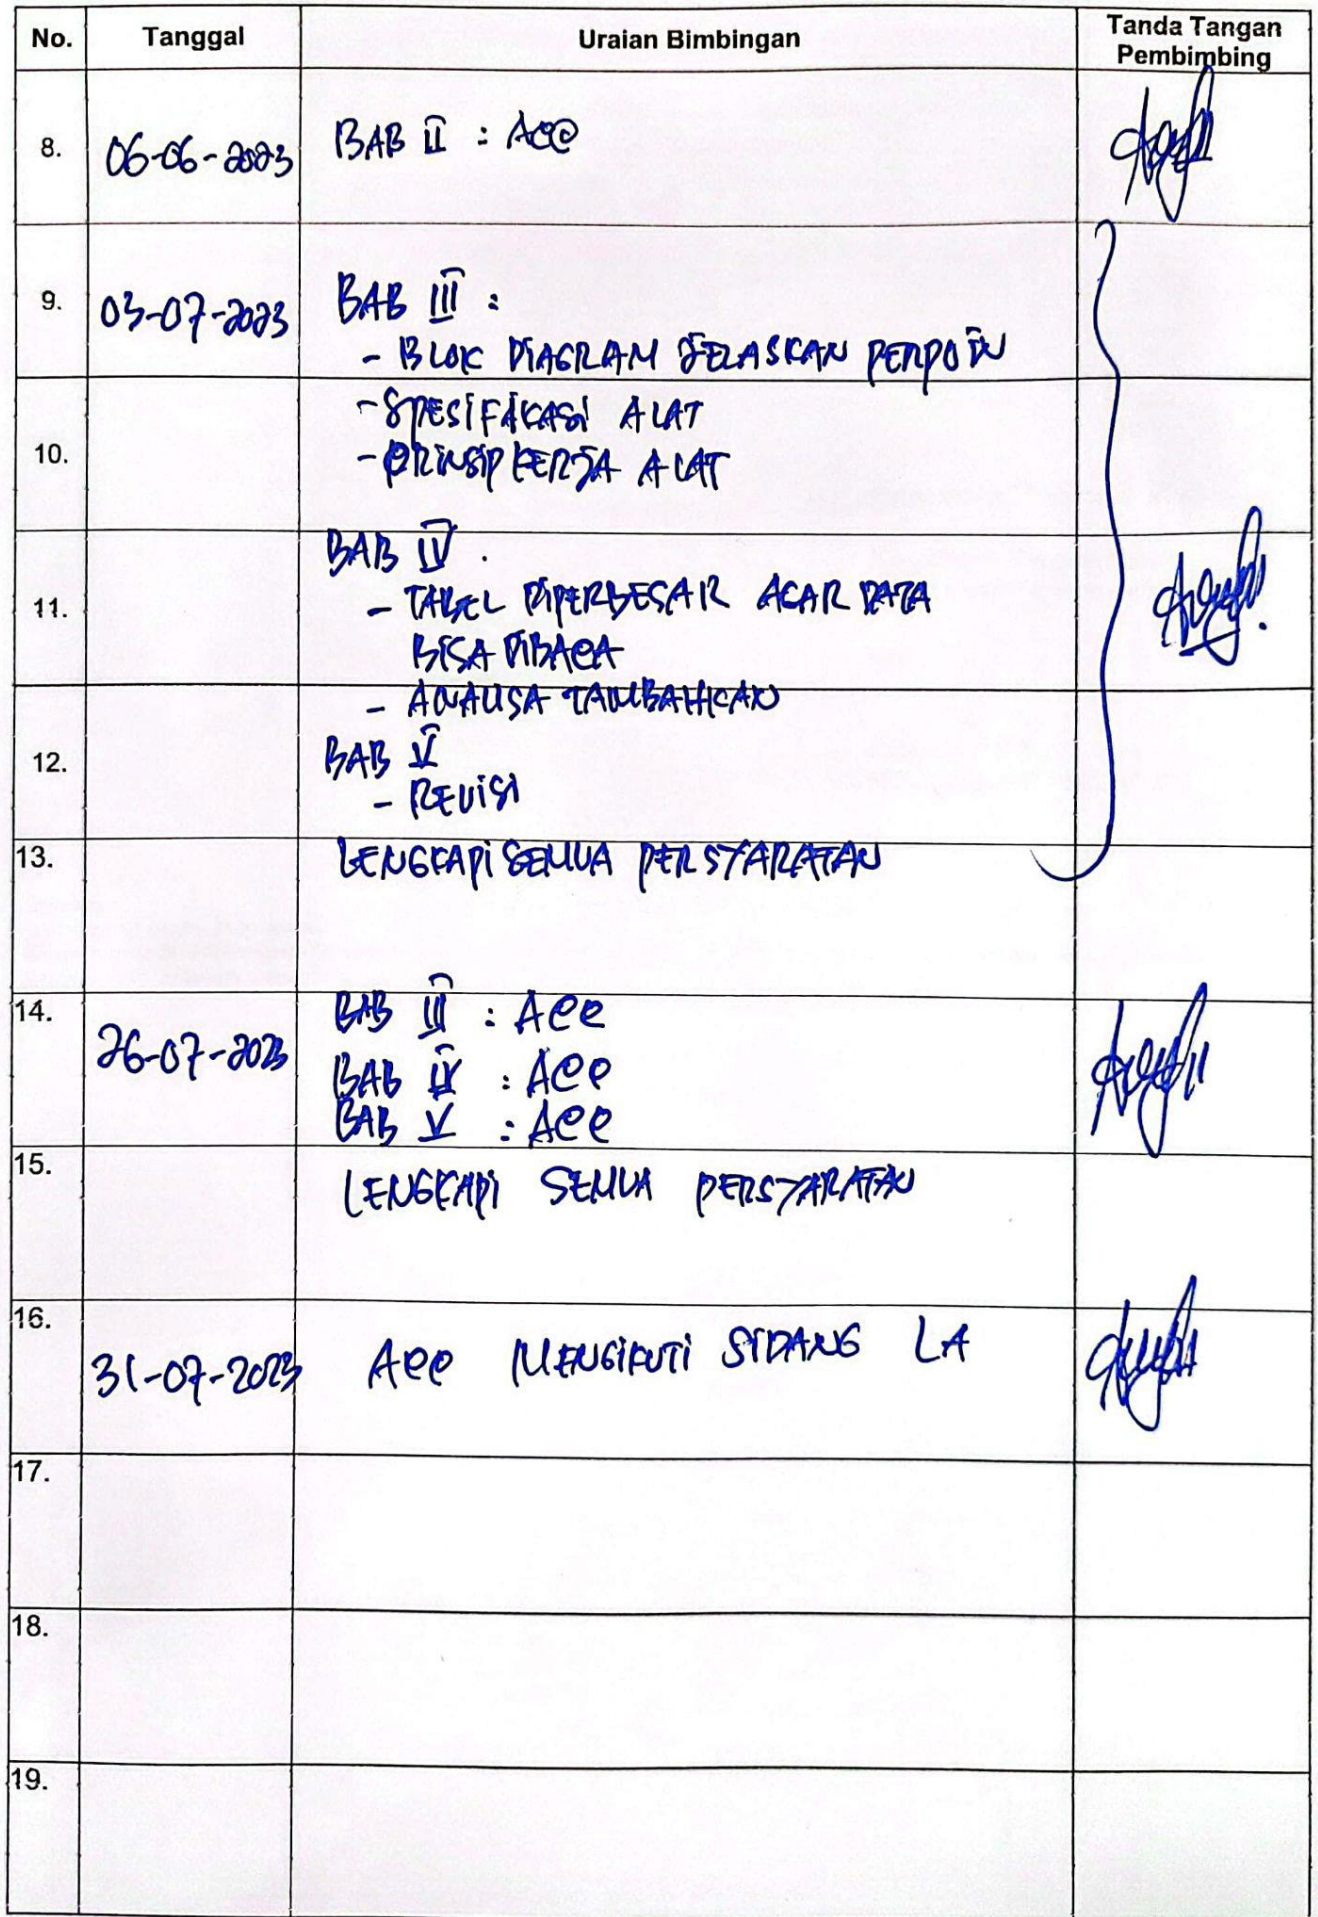 No. Tanggal Uraian Bimbingan Tanda Tangan Pembimbing
8. 06-06-2023 BAB II : Acc
9. 03-07-2023 BAB III :
- BLOK DIAGRAM JELASKAN PERPOIN
- SPESIFIKASI ALAT
10. - PRINSIP KERJA ALAT
BAB IV.
11. - TABEL DIPERBESAR AGAR DATA
BISA DIBACA
- ANALISA TAMBAHKAN
12. BAB V
- REVISI
13. LENGKAPI SEMUA PERSYARATAN
14. 26-07-2023 BAB III : Acc
BAB IV : Acc
BAB V : Acc
15. LENGKAPI SEMUA PERSYARATAN
16. 31-07-2023 Acc MENGIKUTI SIDANG LA
17.
18.
19.